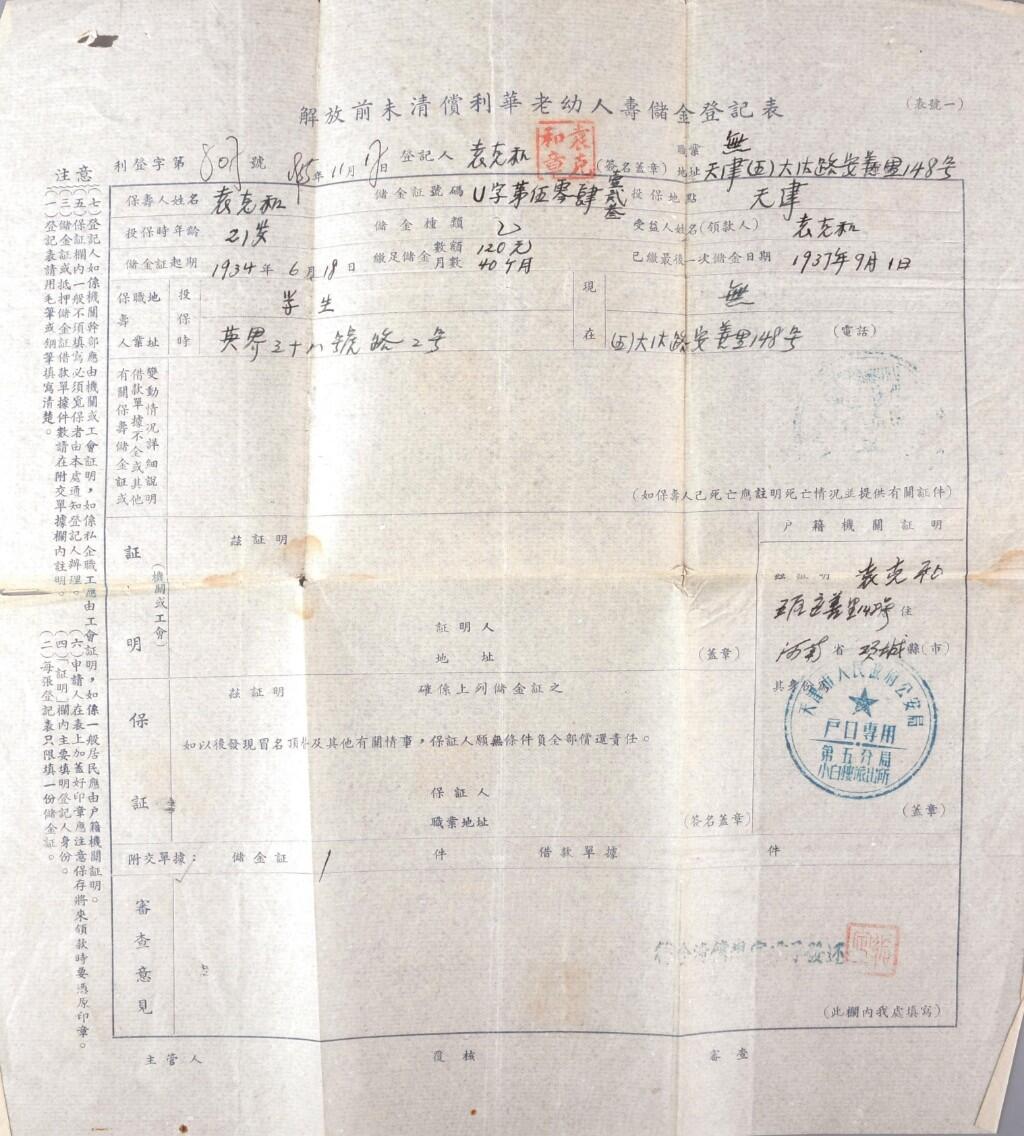 解放前未清償利華老幼人壽儲金登記表
(表號一)
利登字第 807 號
年11月 日
登記人 袁克和
袁克和章
(簽名蓋章)
職業 無
地址 天津(五)大沽路安善里148号
保壽人姓名 袁克和
儲金証號碼 U字第伍零肆壹貳叁
投保地點 天津
投保時年齡 21岁
儲金種類 乙
受益人姓名(領款人) 袁克和
儲金証起期 1934年6月18日
繳足儲金 數額 120元
月數 40个月
已繳最後一次儲金日期 1937年9月1日
保壽人
職業
地址
投保時
学生
英界三十八號路2号
現在
無
(五)大沽路安善里148号
(電話)
有關保壽儲金証或
借款單據不全或其他
變動情况詳細說明
(如保壽人已死亡應註明死亡情况並提供有關証件)
証明
(機關或工會)
茲証明
証明人
地址
(蓋章)
户籍機關証明
茲証明 袁克和
善里148号住
河南省項城縣(市)
其身份
天津市人民政府公安局
户口專用
第五分局
小白樓派出所
(蓋章)
保証
茲証明 確係上列儲金証之
如以後發現冒名頂替及其他有關情事,保証人願無條件負全部償還責任。
保証人
職業地址
(簽名蓋章)
附交單據: 儲金証 1 件 借款單據 件
審查意見
(此欄內我處填寫)
主管人
覆核
審查
注意
(一)登記表請用毛筆或鋼筆填寫清楚。
(二)每張登記表只限填一份儲金証。
(三)儲金証或抵押儲金証借款單據件數請在附交單據欄內註明。
(四)「証明」欄內主要填明登記人身份。
(五)保証欄內一般不須填寫必須覓保者由本處通知登記人辦理。
(六)申請人在表上加蓋好印章應注意保存將來領款時要憑原印章。
(七)登記人如係機關幹部應由機關或工會証明,如係私企職工應由工會証明,如係一般居民應由户籍機關証明。